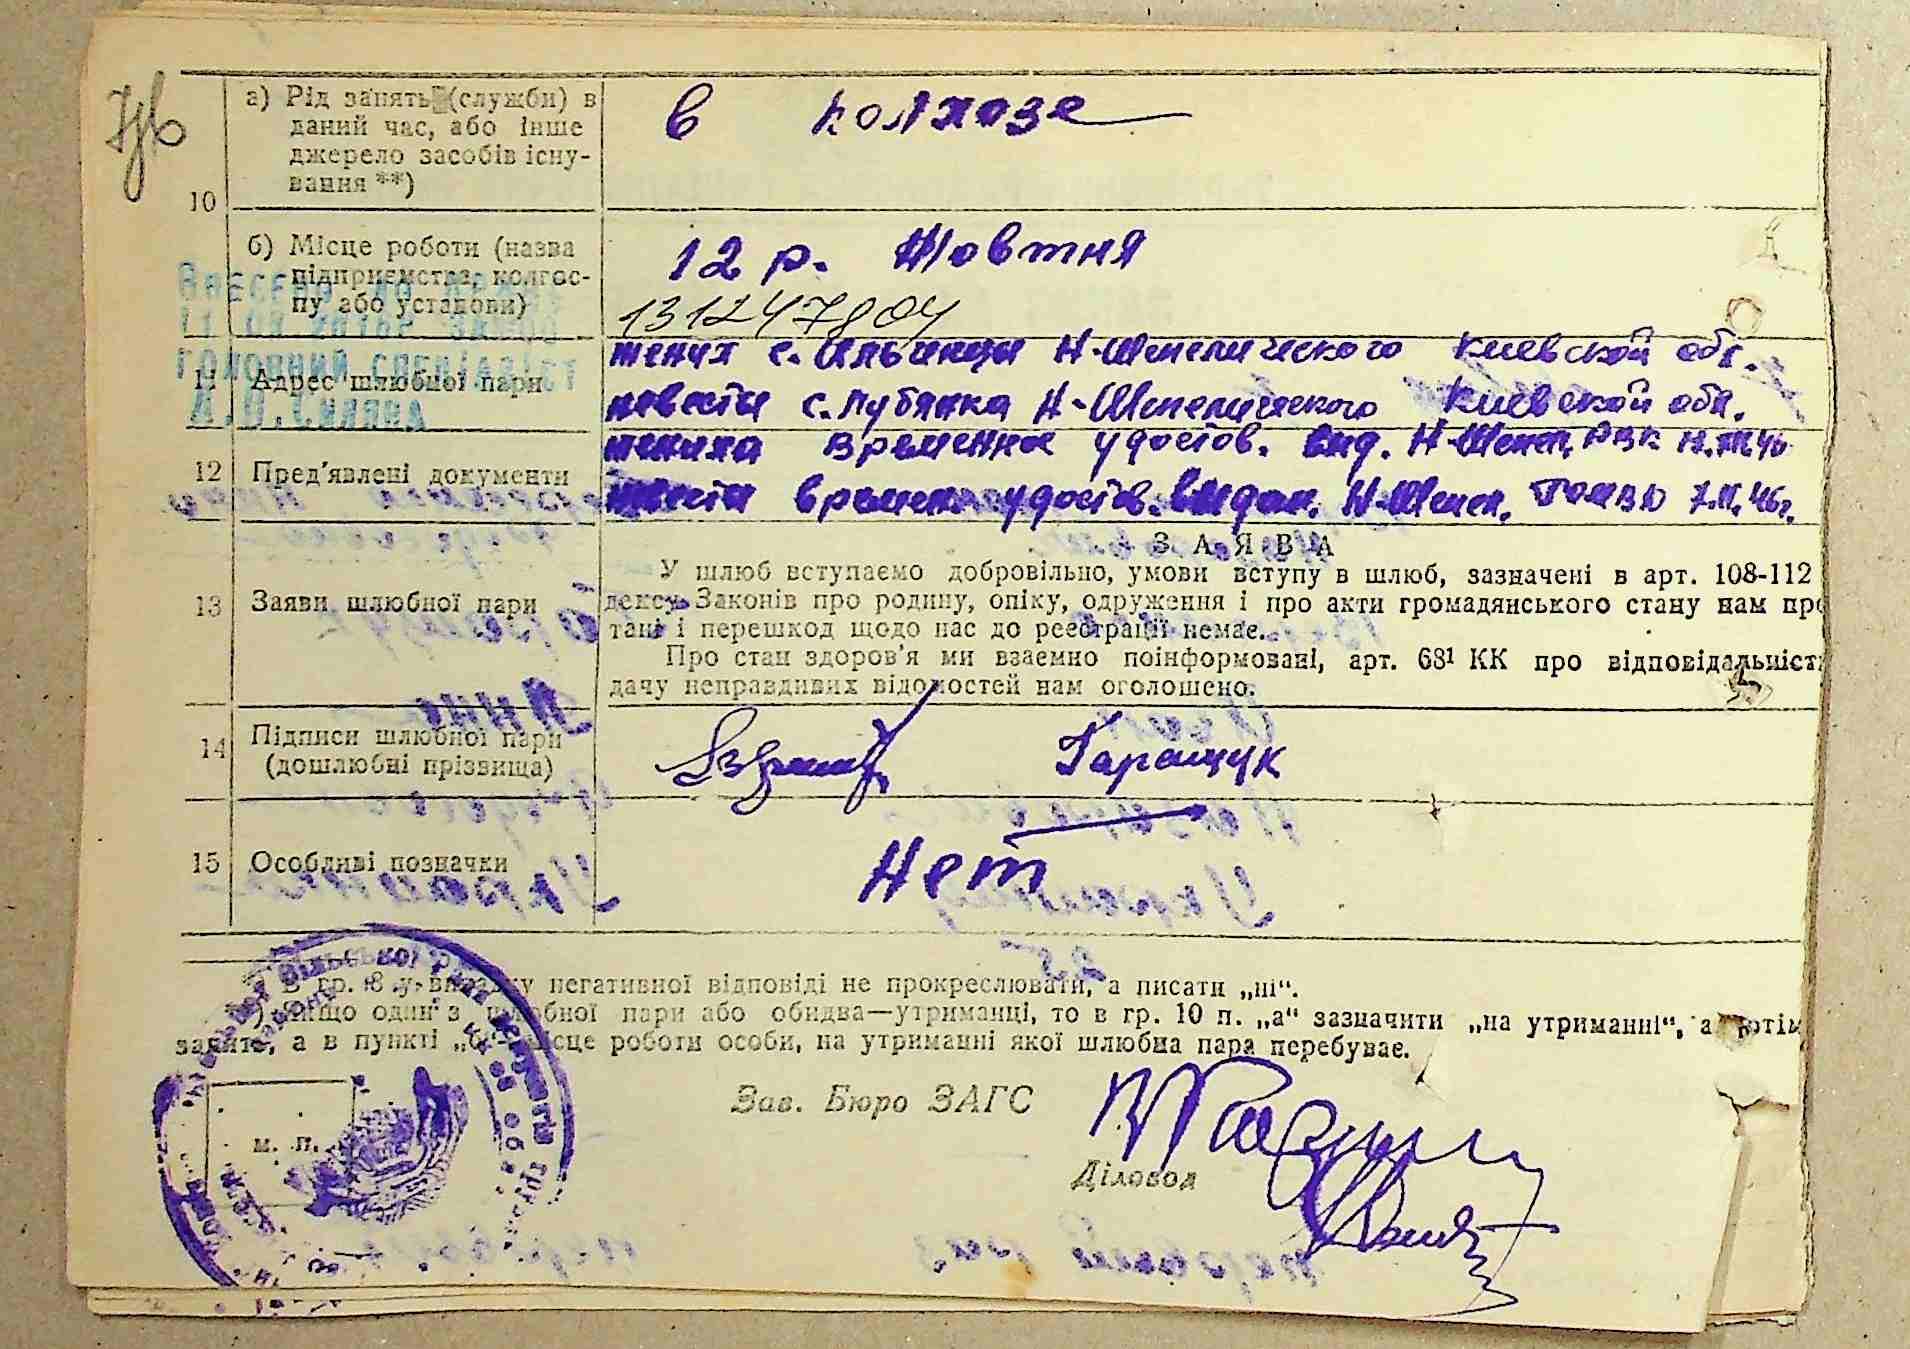 10
а) Рід занять (служби) в
даний час, або інше
джерело засобів існу-
вання **)
в колхозе
б) Місце роботи (назва
підприємства, колгос-
пу або установи)
12 р. Жовтня
131247804
11 Адрес шлюбної пари
жених с. Ильинцы Н-Шепелического Киевской обл.
невеста с. Лубянка Н-Шепелического Киевской обл.
12 Пред'явлені документи
жениха временное удостов. выд. Н-Шепел. РВК
невести времен. удостов. выдан. Н-Шепел. 46г.
13 Заяви шлюбної пари
ЗАЯВА
У шлюб вступаємо добровільно, умови вступу в шлюб, зазначені в арт. 108-112
дексу Законів про родину, опіку, одруження і про акти громадянського стану нам про
тані і перешкод щодо нас до реєстрації немає.
Про стан здоров'я ми взаємно поінформовані, арт. 68¹ КК про відповідальність
дачу неправдивих відомостей нам оголошено.
14 Підписи шлюбної пари
(дошлюбні прізвища)
Гаращук
15 Особливі позначки
Нет
В гр. 8 у випадку негативної відповіді не прокреслювати, а писати „ні“.
) Якщо один з шлюбної пари або обидва—утриманці, то в гр. 10 п. „а“ зазначити „на утриманні“, а потім
заняте, а в пункті „б“—місце роботи особи, на утриманні якої шлюбна пара перебуває.
Зав. Бюро ЗАГС
м. п.
Діловод